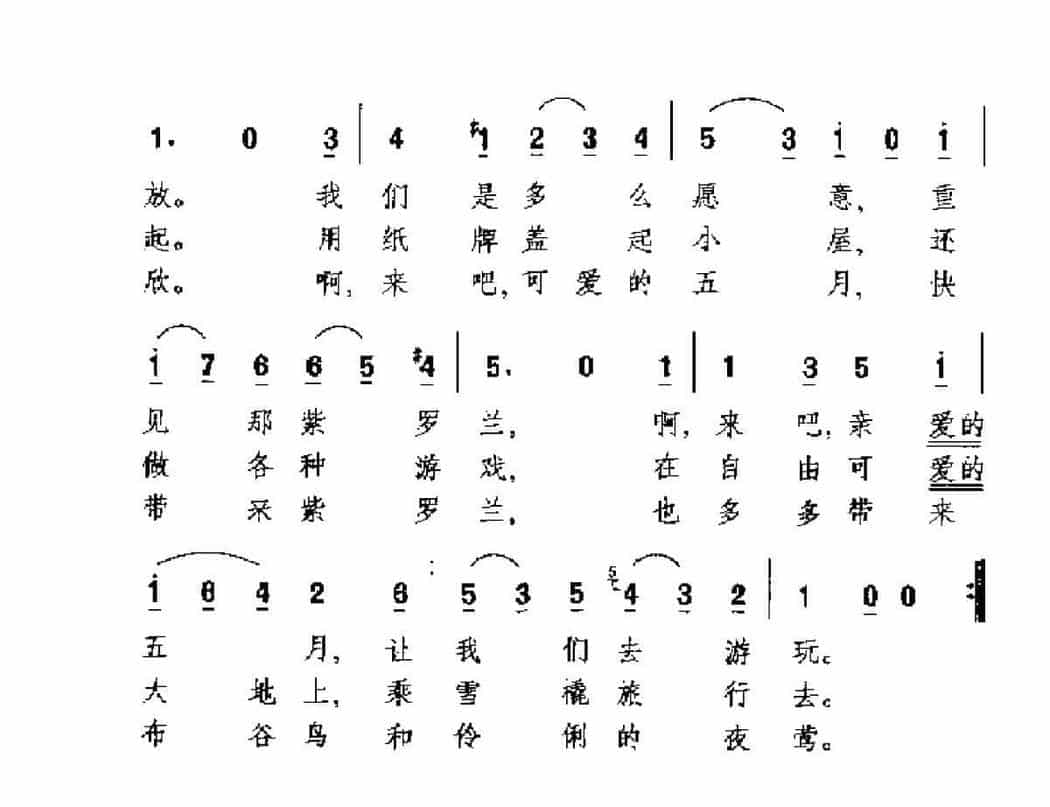 1. 0 3 | 4 #1 2 3 4 | 5 3 i 0 i |
放。 我 们 是 多 么 愿 意, 重
起。 用 纸 牌 盖 起 小 屋, 还
欣。 啊, 来 吧, 可 爱 的 五 月, 快
i 7 6 6 5 #4 | 5. 0 1 | 1 3 5 i |
见 那 紫 罗 兰, 啊, 来 吧, 亲 爱的
做 各 种 游 戏, 在 自 由 可 爱的
带 来 紫 罗 兰, 也 多 多 带 来
i 6 4 2 6 5 3 5 5 4 3 2 | 1 0 0 :|
五 月, 让 我 们 去 游 玩。
大 地 上, 乘 雪 橇 旅 行 去。
布 谷 鸟 和 伶 俐 的 夜 莺。